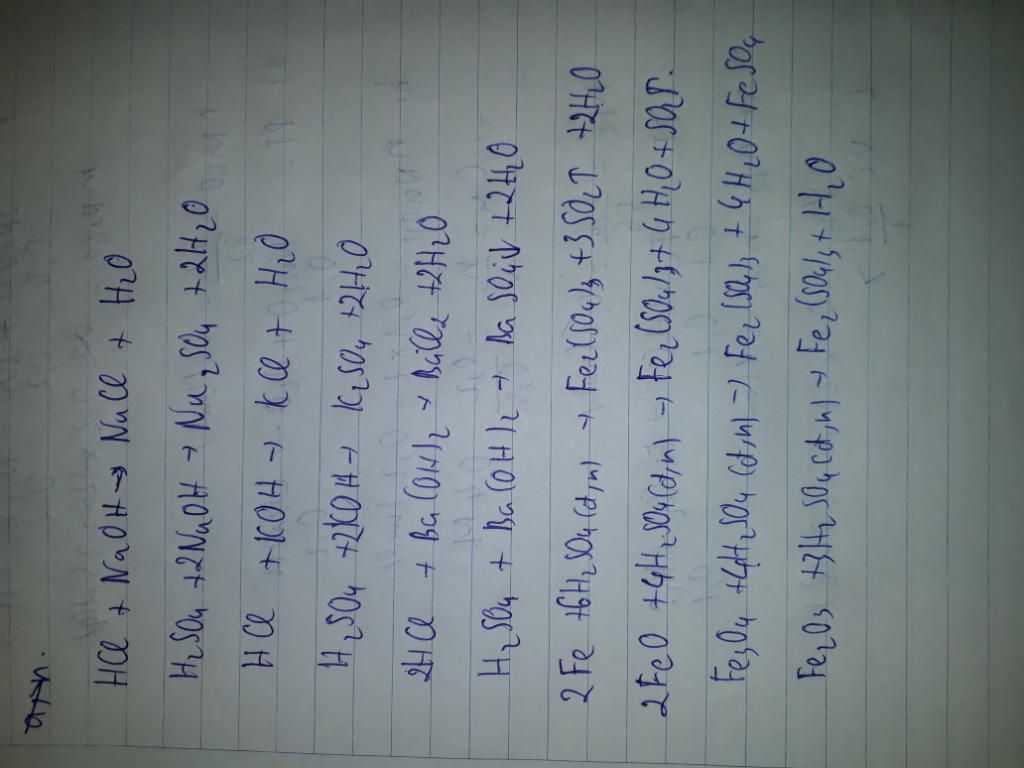 HCl + NaOH → NaCl + H2O
H2SO4 + 2NaOH → Na2SO4 + 2H2O
HCl + KOH → KCl + H2O
H2SO4 + 2KOH → K2SO4 + 2H2O
2HCl + Ba(OH)2 → BaCl2 + 2H2O
H2SO4 + Ba(OH)2 → BaSO4↓ + 2H2O
2Fe + 6H2SO4(đ,n) → Fe2(SO4)3 + 3SO2↑ + 2H2O
2FeO + 4H2SO4(đ,n) → Fe2(SO4)3 + 4H2O + SO2↑.
Fe3O4 + 4H2SO4(đ,n) → Fe2(SO4)3 + 4H2O + FeSO4
Fe2O3 + 3H2SO4(đ,n) → Fe2(SO4)3 + H2O